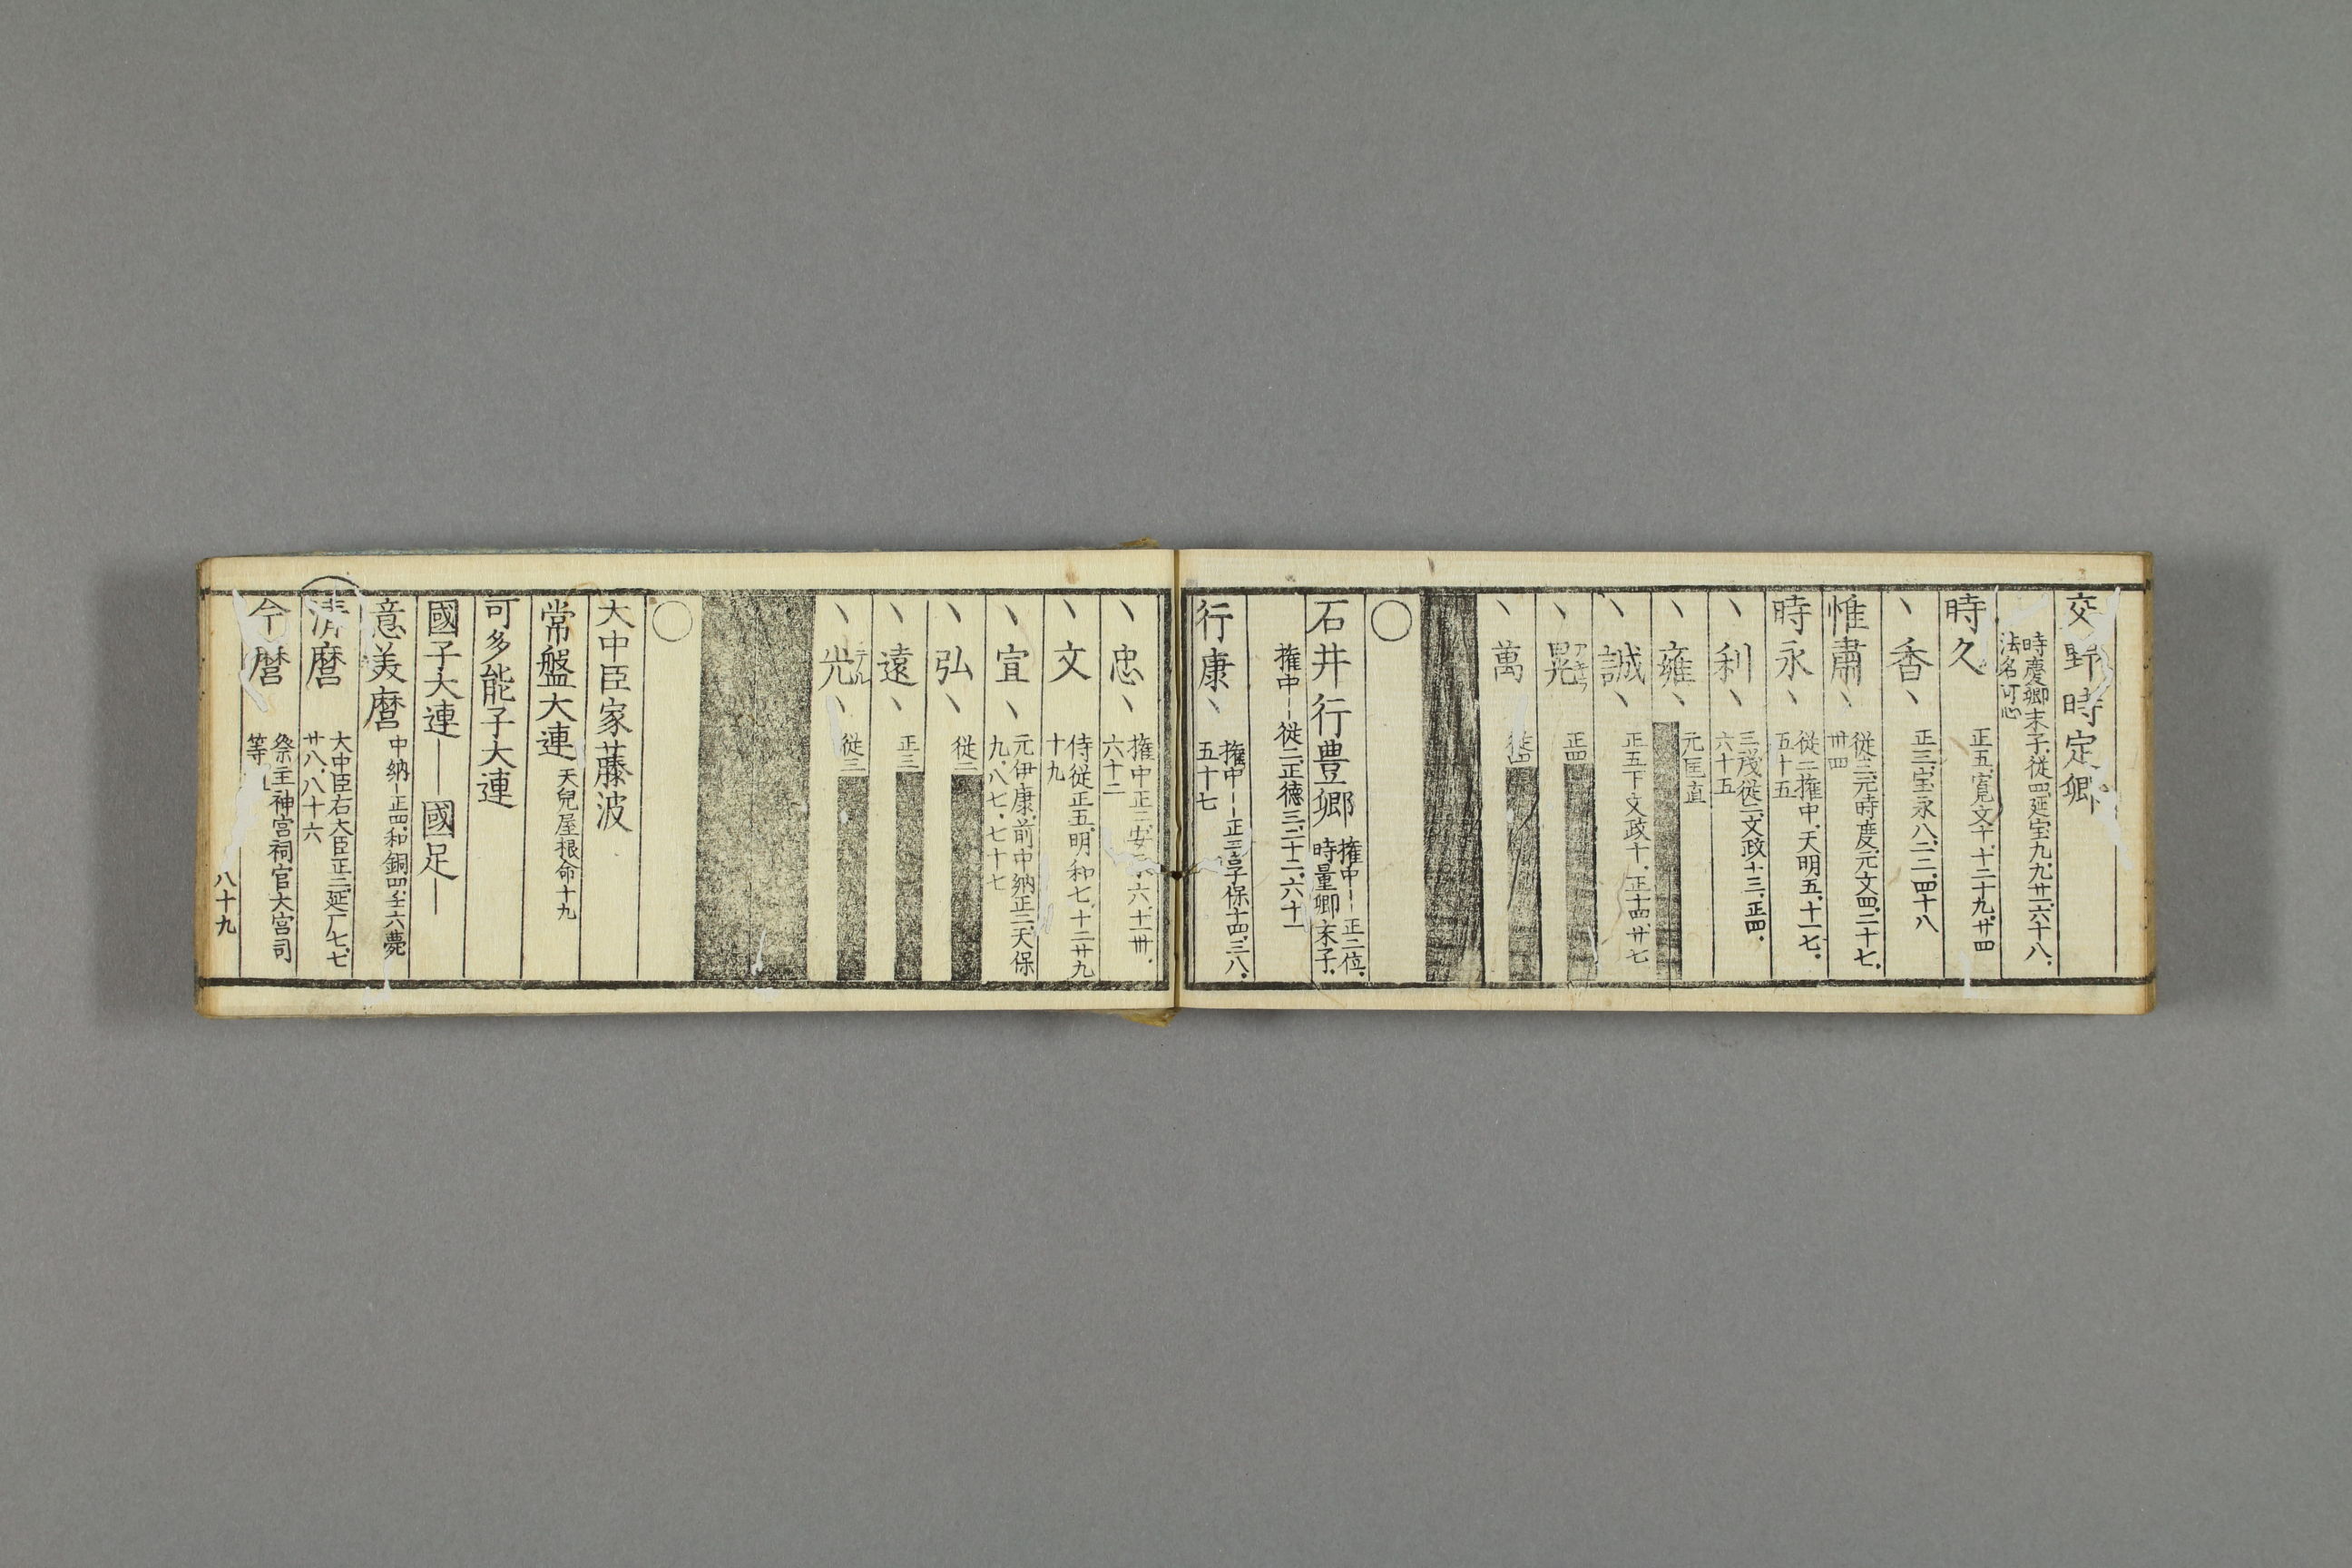 交野時定卿
時慶卿末子、従四、延宝九、九廿二、六十八、
法名可心
時久 正五、寛文十、十二十九、廿四
丶香丶 正三、宝永八、二二、四十八
惟肅丶 従三、元時慶、元文四、二十七、
卅四
時永丶 従二権中、天明五、十一七、
五十五
丶利丶 三茂、従二、文政十三、正四、
六十五
丶雍丶 元匡直
丶誠丶 正五下、文政十、正十四、廿七
丶晃 正四
丶萬 従四
〇
石井行豊卿 権中――正二位、
時量卿末子、
権中――従二、正徳三、二十二、六十一
行康丶 権中――正二、享保十四、三八、
五十七
丶忠丶 権中正二、安永六、十一卅、
六十二
丶文丶 侍従正五、明和七、十二廿九
十九
丶宣丶 元伊康、前中納正二、天保
九、八七、七十七
丶弘丶 従二
丶遠丶 正三
丶光丶 従三
〇
大中臣家藤波
常盤大連 天兒屋根命十九
可多能子大連
國子大連――國足―
意美麿 中納―正四、和銅四、壬六薨
清麿 大中臣右大臣正二、延厂七、七
廿八、八十六
今麿 祭主神宮祠官大宮司
等
八十九